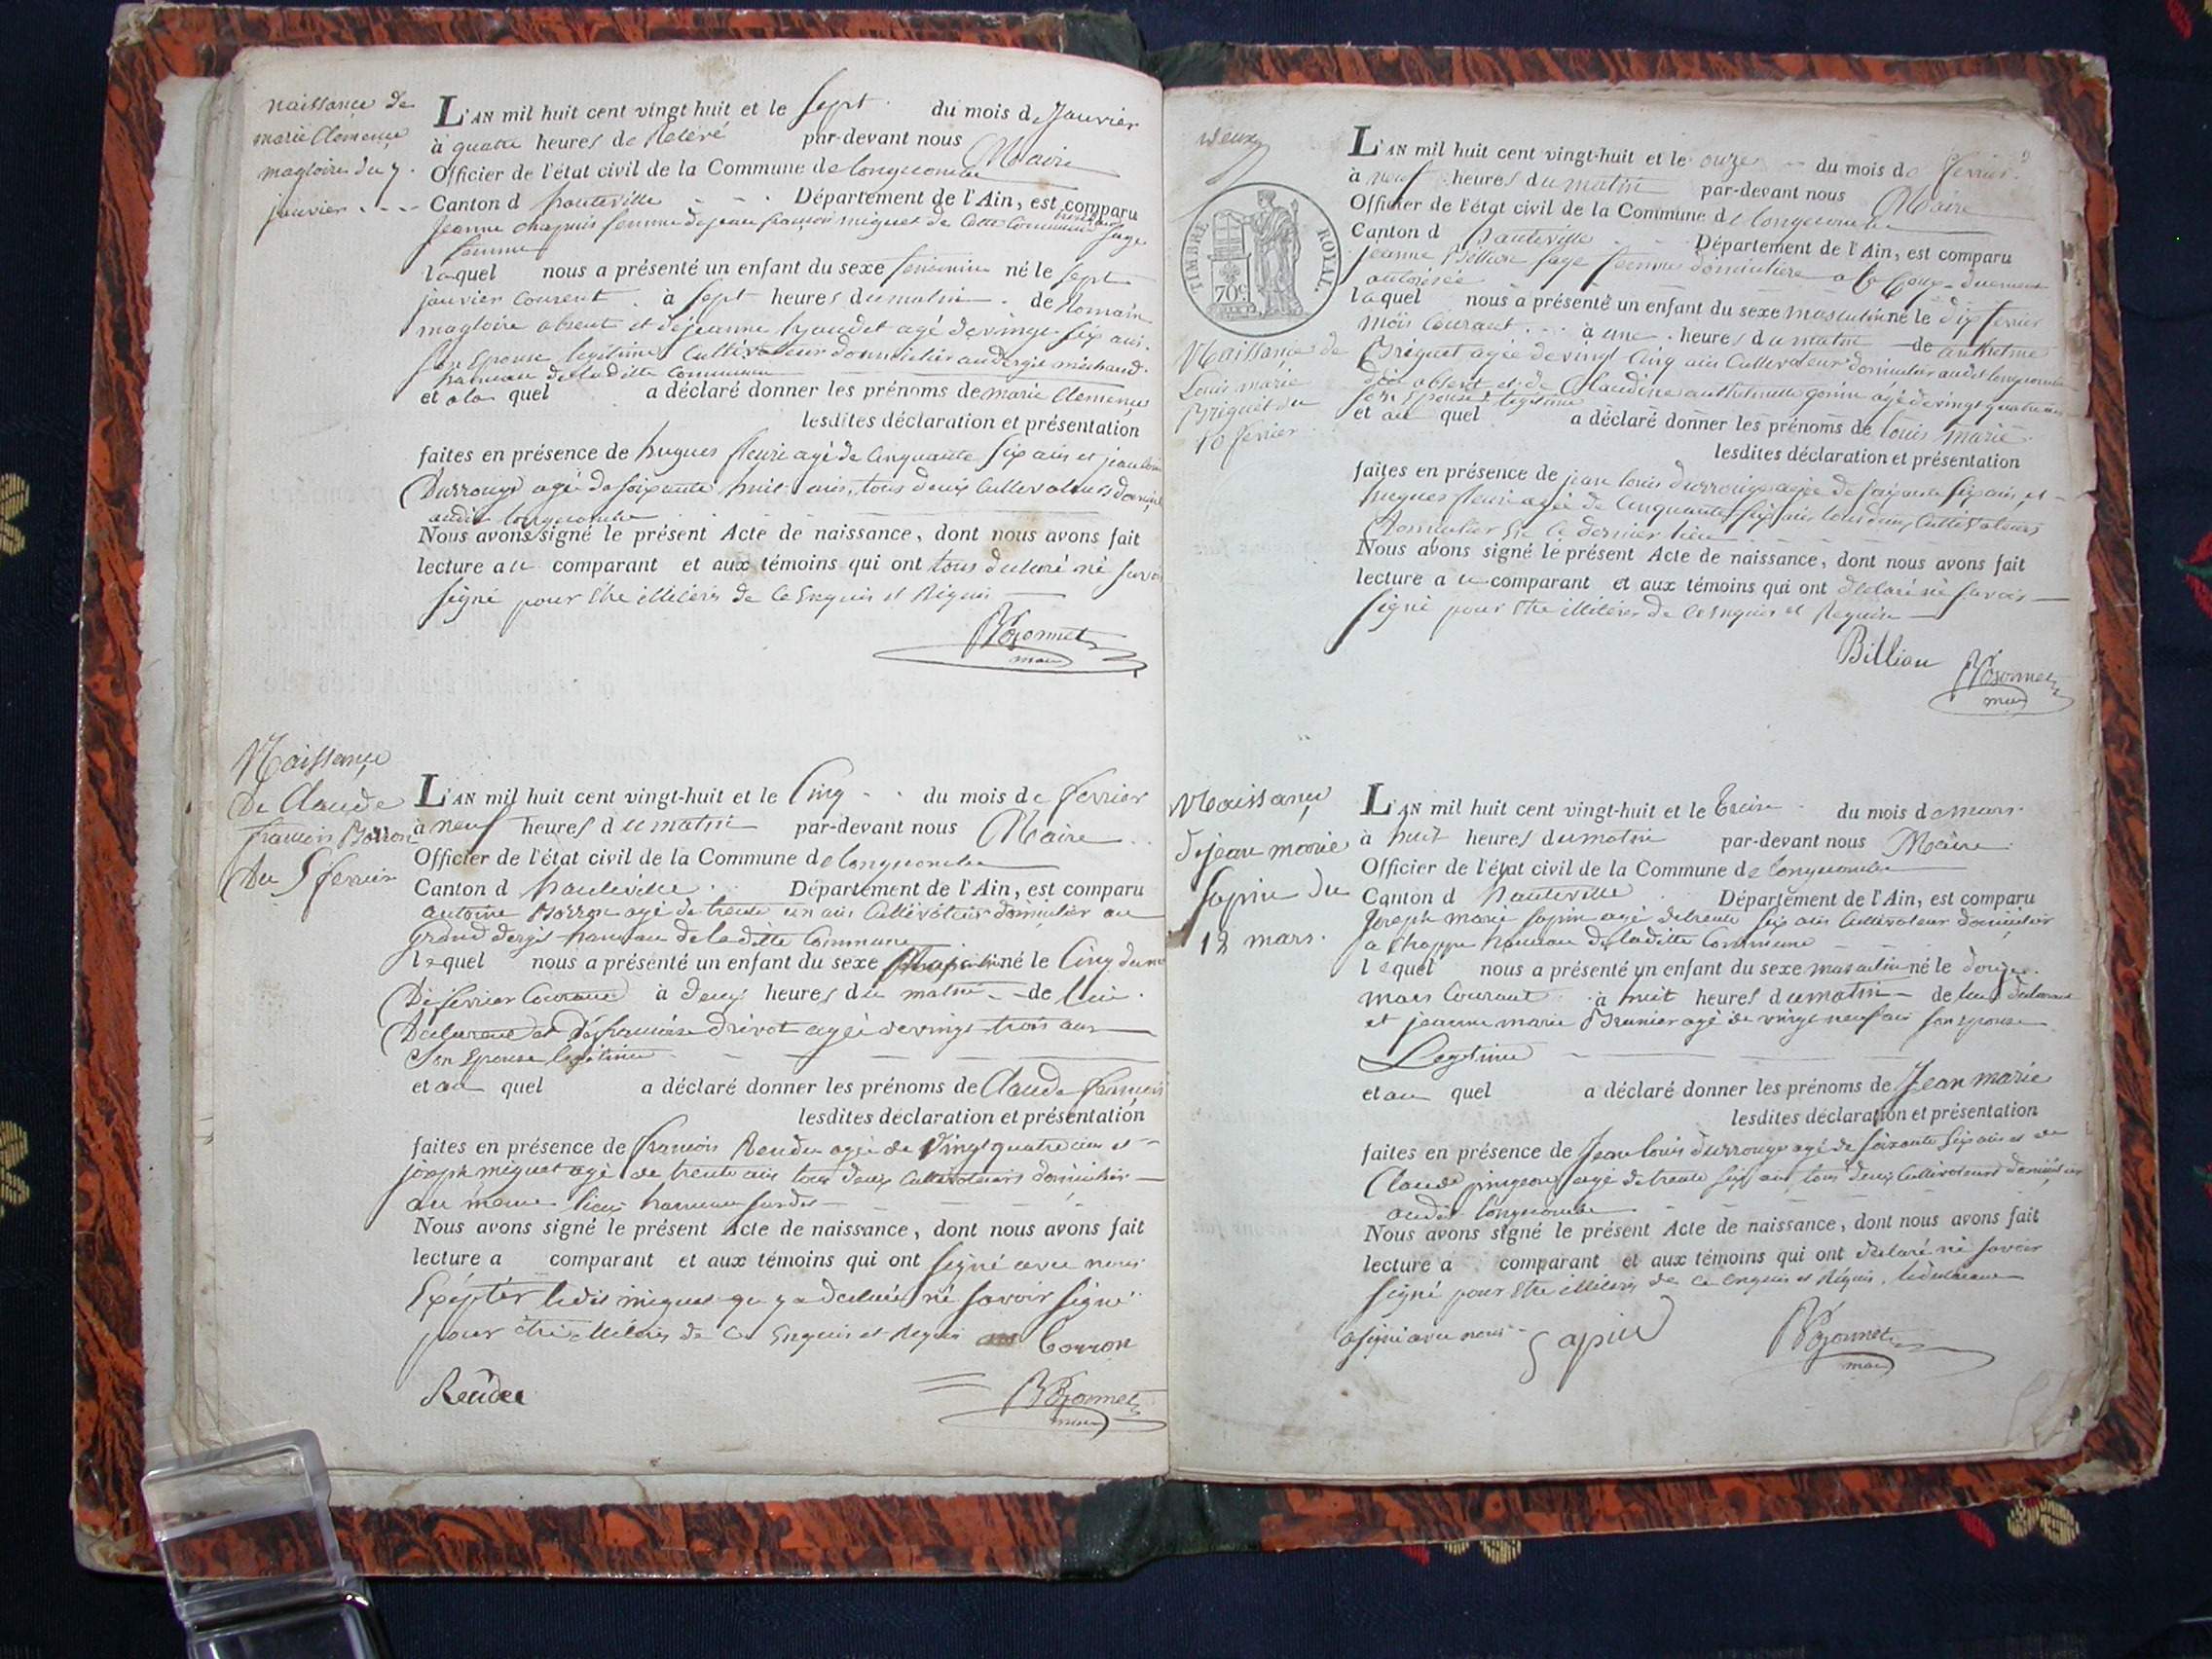 naissance de
marie Clemence
magloire du 7.
janvier
L'AN mil huit cent vingt huit et le sept du mois de Janvier
à quatre heures de Relevé par-devant nous Maire
Officier de l'état civil de la Commune de longecombe
Canton d hauteville Département de l'Ain, est comparu
Jeanne chapuis femme de jean françois miguet de cette Commune sage
femme
laquel nous a présenté un enfant du sexe feminin né le sept
janvier courent à sept heures du matin de Romain
magloire absent et de jeanne agé de vingt six ans
son Epouse legitime Cultivateur domicilier au dergit michaud
hameau de la ditte Commune
et a la quel a déclaré donner les prénoms de marie Clemence
lesdites déclaration et présentation
faites en présence de hugues fleuri agé de Cinquante six ans et jean louis
Durrouge agé de soixante huit ans, tous deux Cultivateurs
audit longecombe
Nous avons signé le présent Acte de naissance, dont nous avons fait
lecture au comparant et aux témoins qui ont tous declaré né savoir
signé pour être illiterés de ce Enquis et Riquis
maire
Naissance
De Claude
francois Borron
Du 5 ferrier
L'AN mil huit cent vingt-huit et le Cinq du mois de ferrier
à neuf heures du matin par-devant nous Maire
Officier de l'état civil de la Commune de longecombe
Canton d hauteville Département de l'Ain, est comparu
antoine Borron agé de trente un ans Cultivateur domicilier au
grand dergit hameau de la ditte Commune
lequel nous a présenté un enfant du sexe né le Cinq du mois
De ferrier Courant à deux heures du matin de lui
Declarant et De francoise drivot agée de vingt trois ans
Son Epouse legitime
et au quel a déclaré donner les prénoms de Claude francois
lesdites déclaration et présentation
faites en présence de francois Rendu agé de Vingt quatre ans et
joseph miguet agé de trente ans tous deux Cultivateurs domicilier
au meme lieu hameau surdit
Nous avons signé le présent Acte de naissance, dont nous avons fait
lecture a comparant et aux témoins qui ont signé avec nous
Exépter ledit miguet qu y a declaré né savoir signé
pour être illiteris de ce Enquis et Requis Borron
Rendu
maire
deux
TIMBRE ROYAL.
70c.
Naissance de
Louis marie
Briguet du
10 ferrier
L'AN mil huit cent vingt-huit et le onze du mois de ferrier
à neuf heures du matin par-devant nous Maire
Officier de l'état civil de la Commune de longecombe
Canton d hauteville Département de l'Ain, est comparu
jeanne Billion sage femme domiciliere a la duement
autorisée
laquel nous a présenté un enfant du sexe masculin né le dix ferrier
mois Courant à une heures du matin de anthelme
Briguet agée de vingt Cinq ans Cultivateur domicilier audit longecombe
absent et de Claudine anthelmette agé de vingt quatre ans
son Epouse legitime
et au quel a déclaré donner les prénoms de louis marie
lesdites déclaration et présentation
faites en présence de jean louis durrouge agée de soixante six ans et
hugues fleuri agée de Cinquante six ans tous deux Cultivateurs
Domicilier ce dernier lieu
Nous avons signé le présent Acte de naissance, dont nous avons fait
lecture a u comparant et aux témoins qui ont declaré né savoir
signé pour être illiteres de ce enquis et Requis
Billion
maire
Naissance
de jean marie
sapin du
12 mars.
L'AN mil huit cent vingt-huit et le treize du mois de mars
à huit heures du matin par-devant nous Maire
Officier de l'état civil de la Commune de longecombe
Canton d hauteville Département de l'Ain, est comparu
Joseph marie sapin agé de trente six ans Cultivateur domicilier
a Chappe hameau de la ditte Commune
lequel nous a présenté un enfant du sexe masculin né le douze
mars Courant à huit heures du matin de lui declarant
et jeanne marie Brunier agé de vingt neuf ans son epouse
Legitime
et au quel a déclaré donner les prénoms de Jean marie
lesdites déclaration et présentation
faites en présence de Jean louis durrouge agé de soixante six ans et de
Claude pingeon agé de trente six ans, tous deux Cultivateurs domicilier
audit longecombe
Nous avons signé le présent Acte de naissance, dont nous avons fait
lecture a comparant et aux témoins qui ont declaré né savoir
signé pour être illiteris de ce enquis et Requis, le declarant
a signé avec nous Sapin
maire